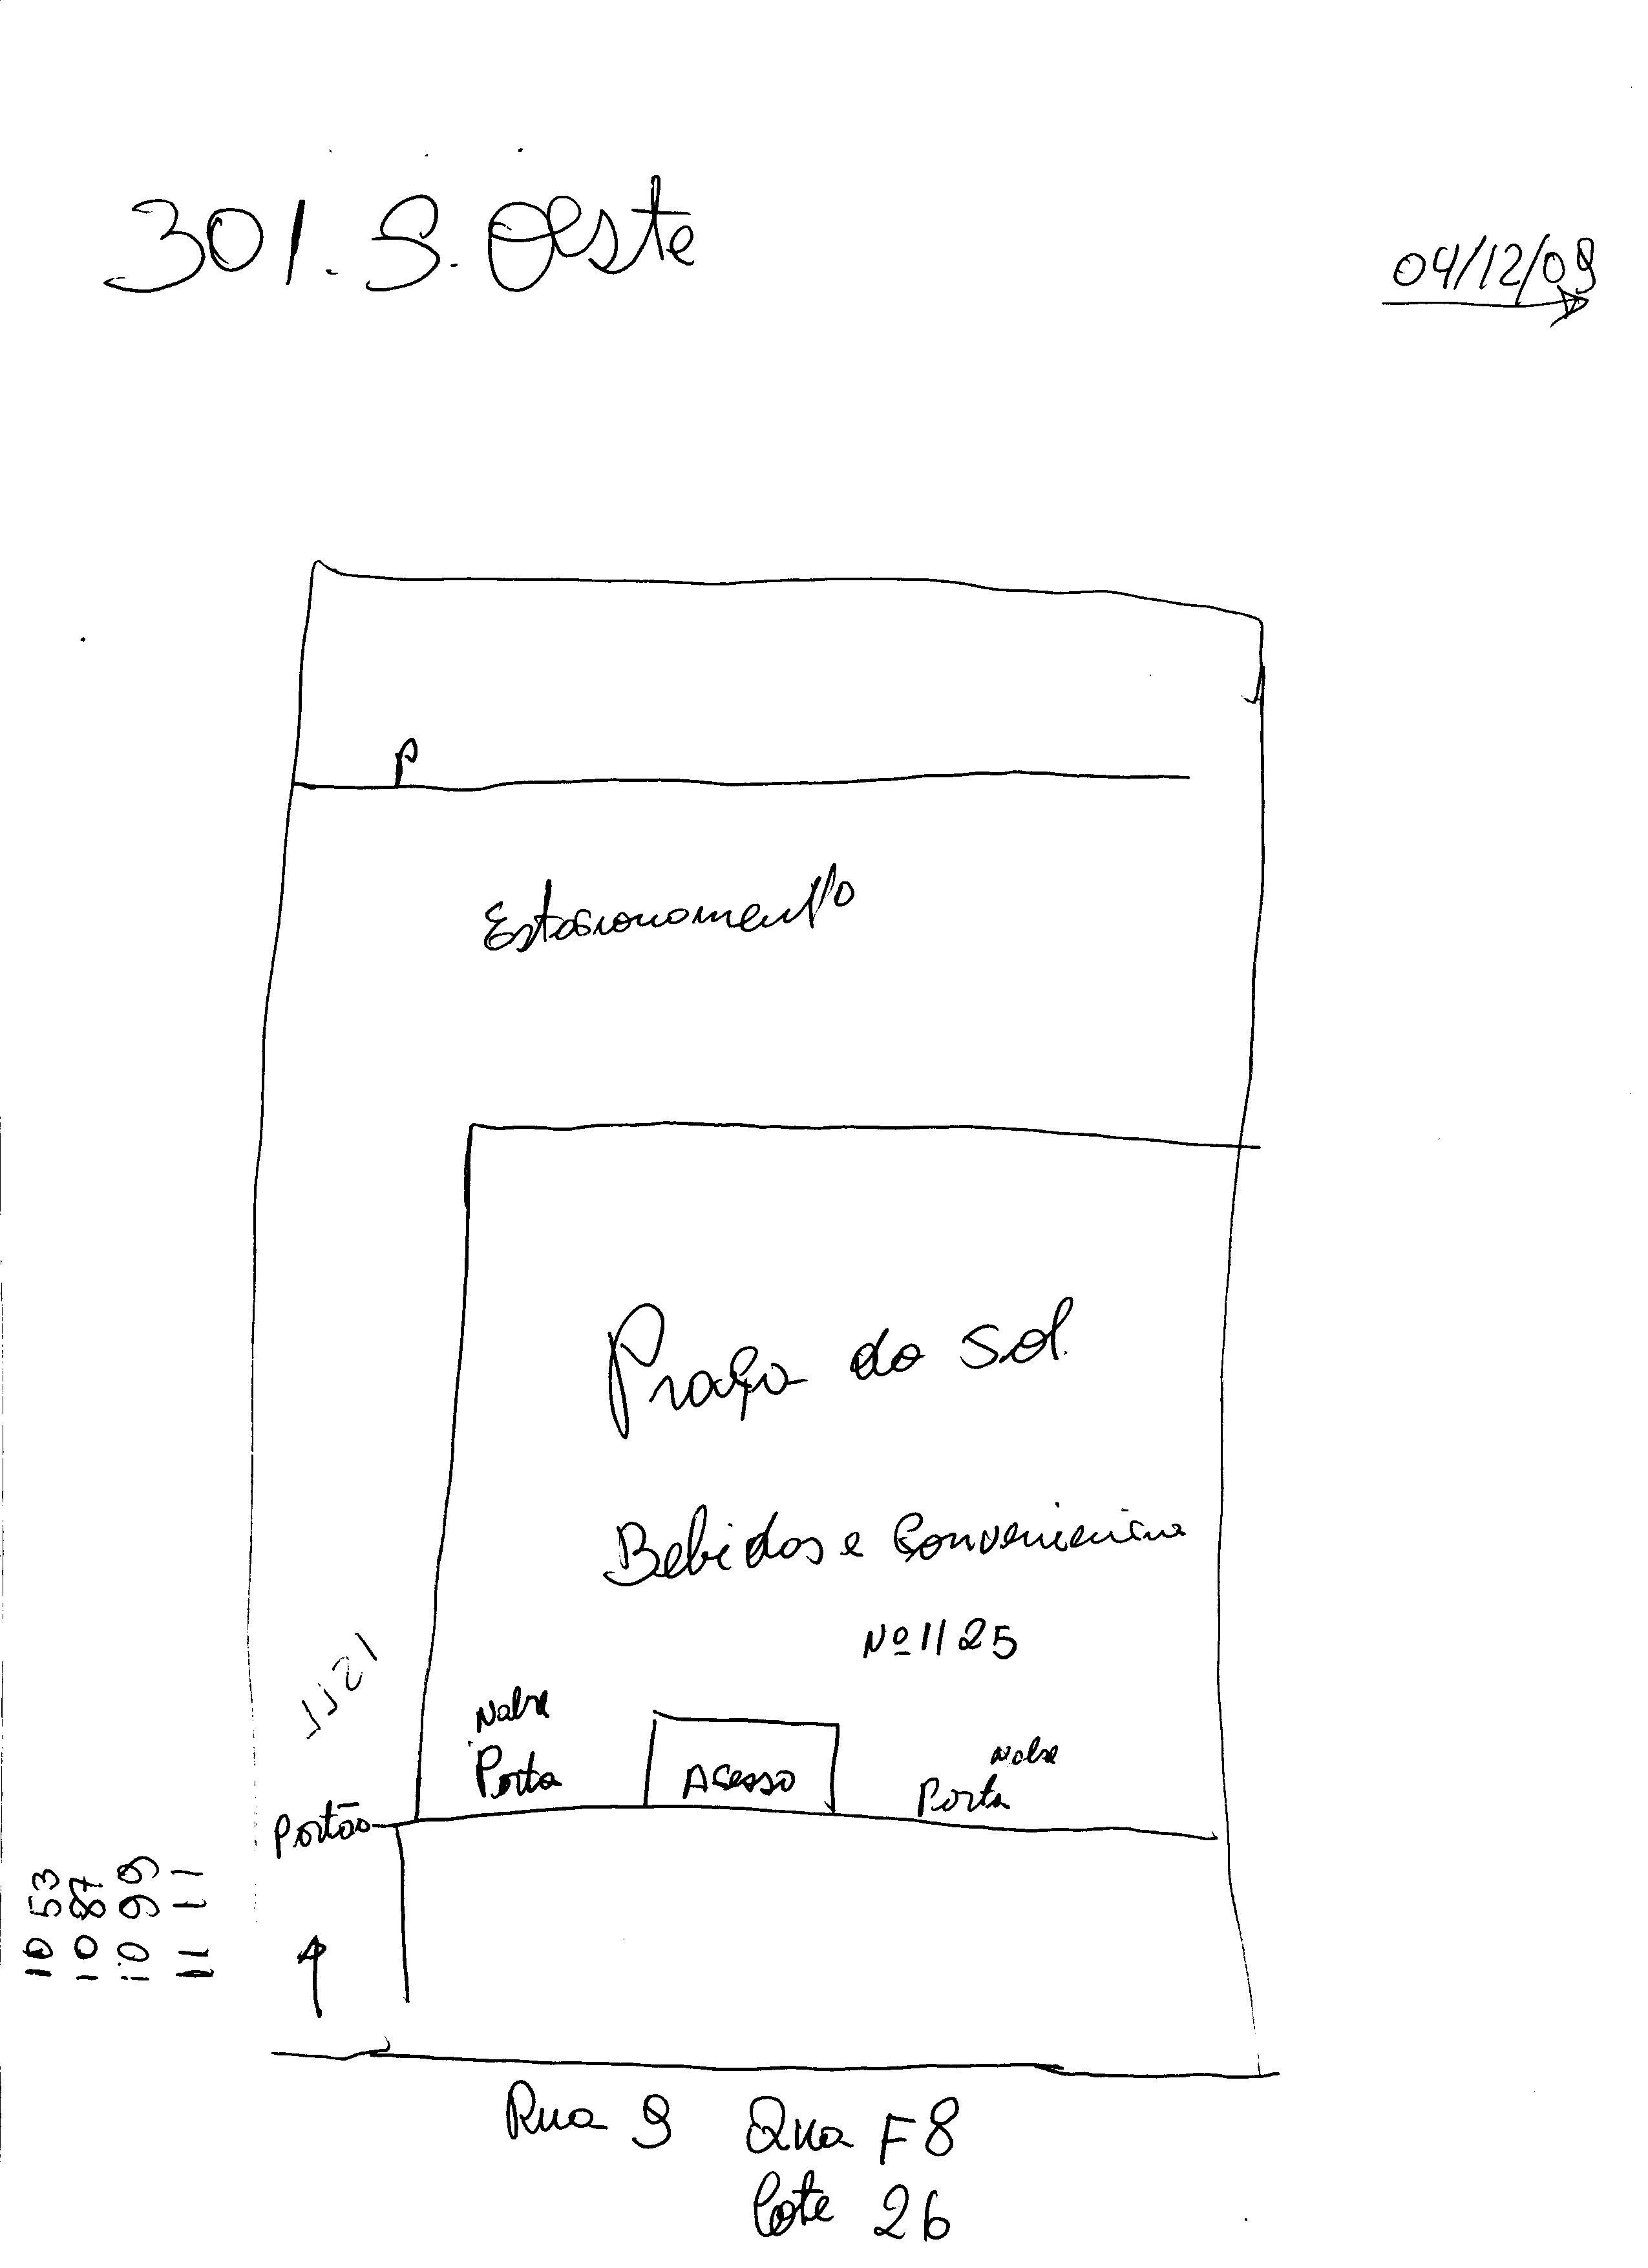 301. S. Oeste
04/12/09
P
Estacionamento
Praça do Sol.
Bebidas e Conveniência
Nº 1125
Porta
Acesso
Porta
Portão
10 53
10 87
10 99
11 11
Rua 9 Qua F8
Lote 26